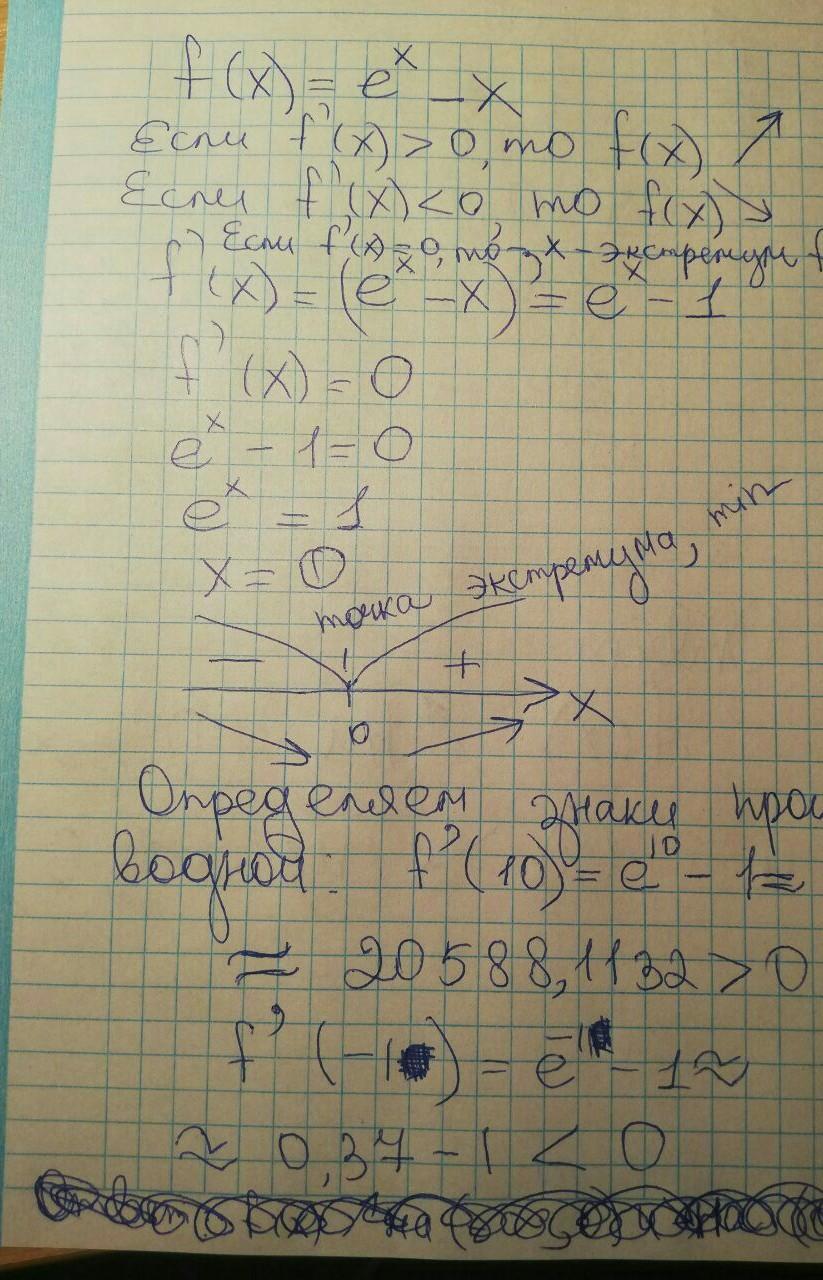 f(x) = e^x - x
Если f'(x) > 0, то f(x) ↗
Если f'(x) < 0, то f(x) ↘
Если f'(x) = 0, то x - экстремум f
f'(x) = (e^x - x)' = e^x - 1
f'(x) = 0
e^x - 1 = 0
e^x = 1
x = 0
точка экстремума, min
- +
0 x
Определяем знаки прои
водной: f'(10) = e^10 - 1 ≈
≈ 20588,1132 > 0
f'(-1) = e^-1 - 1 ≈
≈ 0,37 - 1 < 0